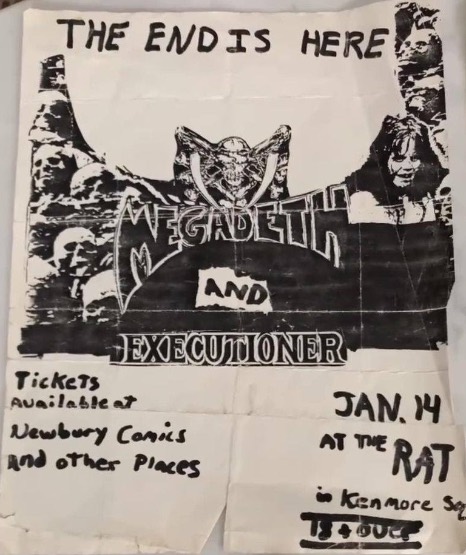 THE END IS HERE
MEGADETH
AND
EXECUTIONER
Tickets
Available at
Newbury Comics
And other Places
JAN. 14
AT THE RAT
in Kenmore Sq
18 + OVER